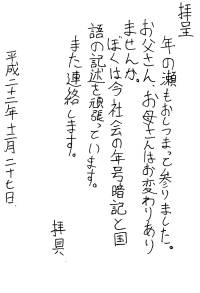 拝呈
年の瀬もおしつまって参りました。
お父さん、お母さんはお変わりあり
ませんか。
ぼくは今社会の年号暗記と国
語の記述を頑張っています。
また連絡します。
拝具
平成二十二年十二月二十七日